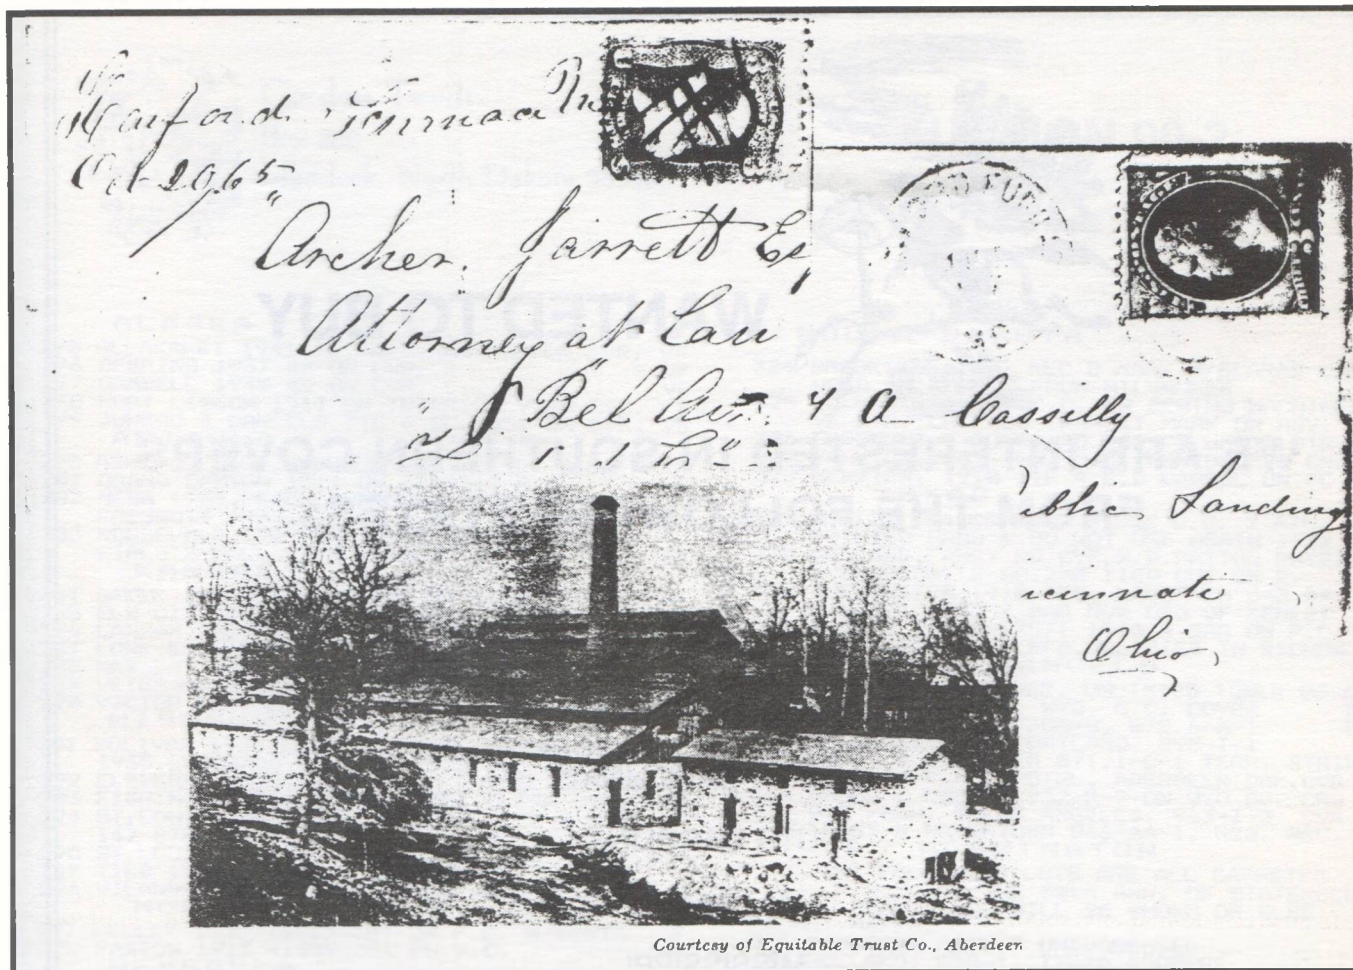 Harford Furnace
Oct 20, 65
Archer, Jarrett Esq
Attorney at Law
Bel Air
A Cassilly
blic Landing
icinnati
Ohio
Courtesy of Equitable Trust Co., Aberdeen